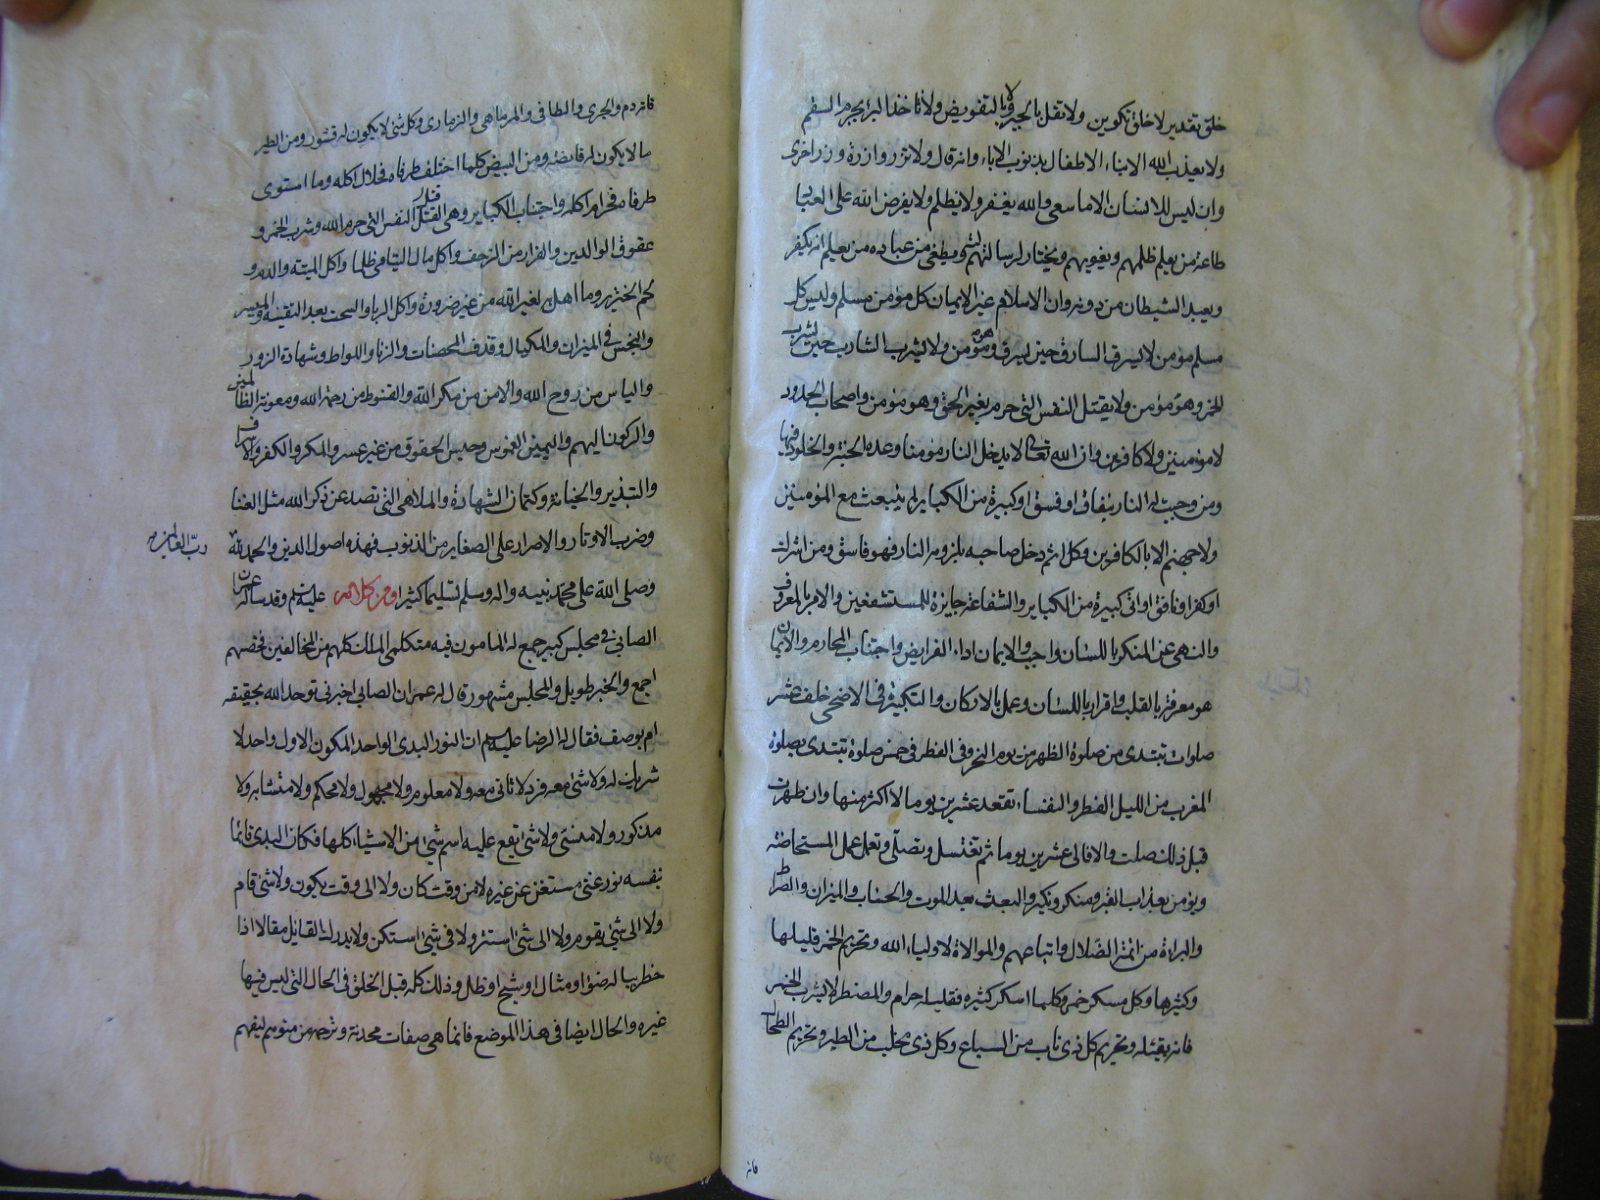 خلق تقدير لا خلق تكوين ولا تقل بالجبر ولا بالتفويض ولا تاخذ البرا بجرم السقم
ولا يعذب الله الابناء الاطفال بذنوب الاباء وانه قال ولا تزر وازرة وزر اخرى
وان ليس للانسان الا ما سعى والله يغفر ولا يظلم ولا يفرض الله على العباد
طاعة من يعلم ظلمهم ويغويهم ويختار لرسالتهم ويصطفى من عباده من يعلم انه يكفر
ويعبد الشيطان من دونه وان الاسلام غير الايمان كل مؤمن مسلم وليس كل
مسلم مؤمن لا يسرق السارق حين يسرق وهو مؤمن ولا يشرب الشارب حين يشرب
الخمر وهو مؤمن ولا يقتل النفس التى حرم بغير الحق وهو مؤمن واصحاب الحدود
لا مؤمنين ولا كافرين وان الله تعالى لا يدخل النار مؤمنا وعده الجنة والخلود فيها
ومن وجبت له النار بنفاق او فسق او كبيرة من الكباير لم يبعث مع المؤمنين
ولا جهنم الا بالكافرين وكل اثم دخل صاحبه بلزومه النار فهو فاسق ومن اشرك
او كفر او نافق او اتى كبيرة من الكباير والشفاعة جايزة للمستشفعين والامر بالمعروف
والنهى عن المنكر باللسان واجب والايمان اداء الفرايض واجتناب المحارم والايمان
هو معرفة بالقلب واقرار باللسان وعمل بالاركان والتكبير فى الاضحى خلف عشر
صلوات تبتدى من صلوة الظهر من يوم النحر وفى الفطر فى خمس صلوة تبتدى بصلوة
المغرب من الليل الفطر والنفساء تقعد عشرين يوما لا اكثر منها وان طهرت
قبل ذلك صلت والا فالى عشرين يوما ثم تغتسل وتصلى وتعمل عمل المستحاضة
ويؤمن بعذاب القبر ومنكر ونكير والبعث بعد الموت والحساب والميزان والصراط
والبراءة من ائمة الضلال واتباعهم والموالاة لاولياء الله وتحريم الخمر قليلها
وكثيرها وكل مسكر خمر وكلما اسكر كثيره فقليله حرام والمضطر لا يشرب الخمر
فانه يقتله وتحريم كل ذى ناب من السباع وكل ذى مخلب من الطير وتحريم الطحال
فانه
فانه دم والجرى والطافى والمرماهى والزمارى وكل شى لا يكون له قشور ومن الطير
ما لا يكون له قانصه ومن البيض كلما اختلف طرفاه فحلال اكله وما استوى
طرفاه فحرام اكله واجتناب الكباير وهى القتل قتل النفس التى حرم الله وشرب الخمر و
عقوق الوالدين والفرار من الزحف واكل مال اليتامى ظلما واكل الميته والدم و
لحم الخنزير وما اهل لغير الله من غير ضرورة واكل الربا والسحت بعد البينة والميسر
والبخس فى الميزان والمكيال وقدف المحصنات والزنا واللواط وشهادة الزور
والياس من روح الله والامن من مكر الله والقنوط من رحمة الله ومعونة الظالمين
والركون اليهم واليمين الغموس وحبس الحقوق من غير عسر والمكر والكفر والاسراف
والتبذير والخيانة وكتمان الشهادة والملاهى التى تصد عن ذكر الله مثل الغنا
وضرب الاوتار والاصرار على الصغاير من الذنوب فهذه اصول الدين والحمد لله
رب العالمين
وصلى الله على محمد نبيه واله وسلم تسليما كثيرا ومن كلامه عليه السلم وقد ساله عمران
الصابى فى مجلس كبير جمع له المامون فيه متكلمى الملل كلهم من المخالفين فخصهم
اجمع والخبر طويل والمجلس مشهور قال له عمران الصابى اخبرنى توحد الله بحقيقه
ام بوصف فقال له الرضا عليه السلم ان النور البدى الواحد المكون الاول واحد لا
شريك له ولا شى معه فرد لا ثانى معه ولا معلوم ولا مجهول ولا محكم ولا متشابه ولا
مذكور ولا منسى ولا شى يقع عليه اسم شى من الاشياء كلها فكان البدى قائما
بنفسه نور غنى مستغن عن غيره لا من وقت كان ولا الى وقت يكون ولا شى قام
ولا الى شى يقوم ولا الى شى استتر ولا فى شى استكن ولا يدرك القايل مقالا اذا
خطر بباله ضوء او مثال او شبح او ظل وذلك كله قبل الخلق فى الحال التى ليس فيها
غيره والحال ايضا فى هذا الموضع فانما هى صفات محدثة وترجمة من متوسم ليفهم